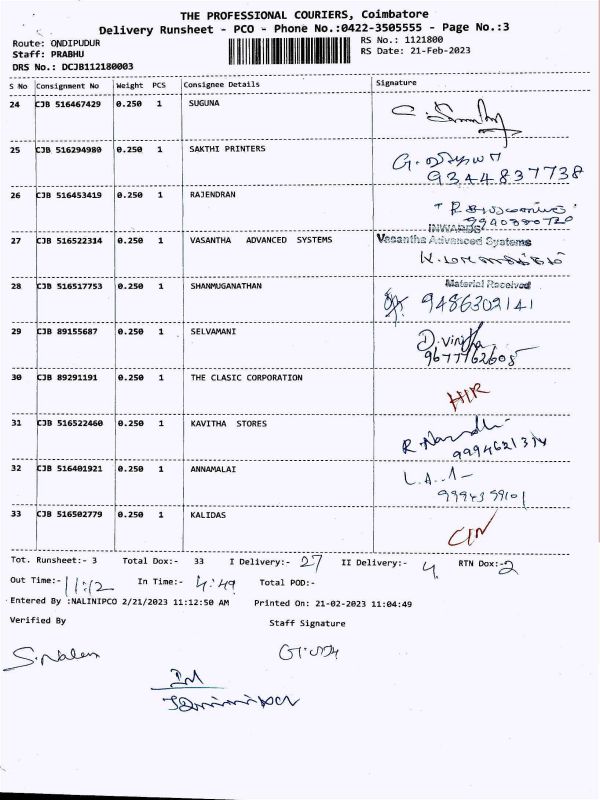 THE PROFESSIONAL COURIERS, Coimbatore
Delivery Runsheet - PCO - Phone No.:0422-3505555 - Page No.:3
Route: ONDIPUDUR RS No.: 1121800
Staff: PRABHU RS Date: 21-Feb-2023
DRS No.: DCJB112180003
S No Consignment No Weight PCS Consignee Details Signature
24 CJB 516467429 0.250 1 SUGUNA
25 CJB 516294980 0.250 1 SAKTHI PRINTERS
9344837738
26 CJB 516453419 0.250 1 RAJENDRAN
INWARDS
27 CJB 516522314 0.250 1 VASANTHA ADVANCED SYSTEMS Vasantha Advanced Systems
28 CJB 516517753 0.250 1 SHANMUGANATHAN Material Received
9486302141
29 CJB 89155687 0.250 1 SELVAMANI
9677762605
30 CJB 89291191 0.250 1 THE CLASIC CORPORATION
31 CJB 516522460 0.250 1 KAVITHA STORES
32 CJB 516401921 0.250 1 ANNAMALAI
33 CJB 516502779 0.250 1 KALIDAS
Tot. Runsheet:- 3 Total Dox:- 33 I Delivery:- 27 II Delivery:- 4 RTN Dox:- 2
Out Time:- 11:12 In Time:- 4:49 Total POD:-
Entered By :NALINIPCO 2/21/2023 11:12:50 AM Printed On: 21-02-2023 11:04:49
Verified By Staff Signature